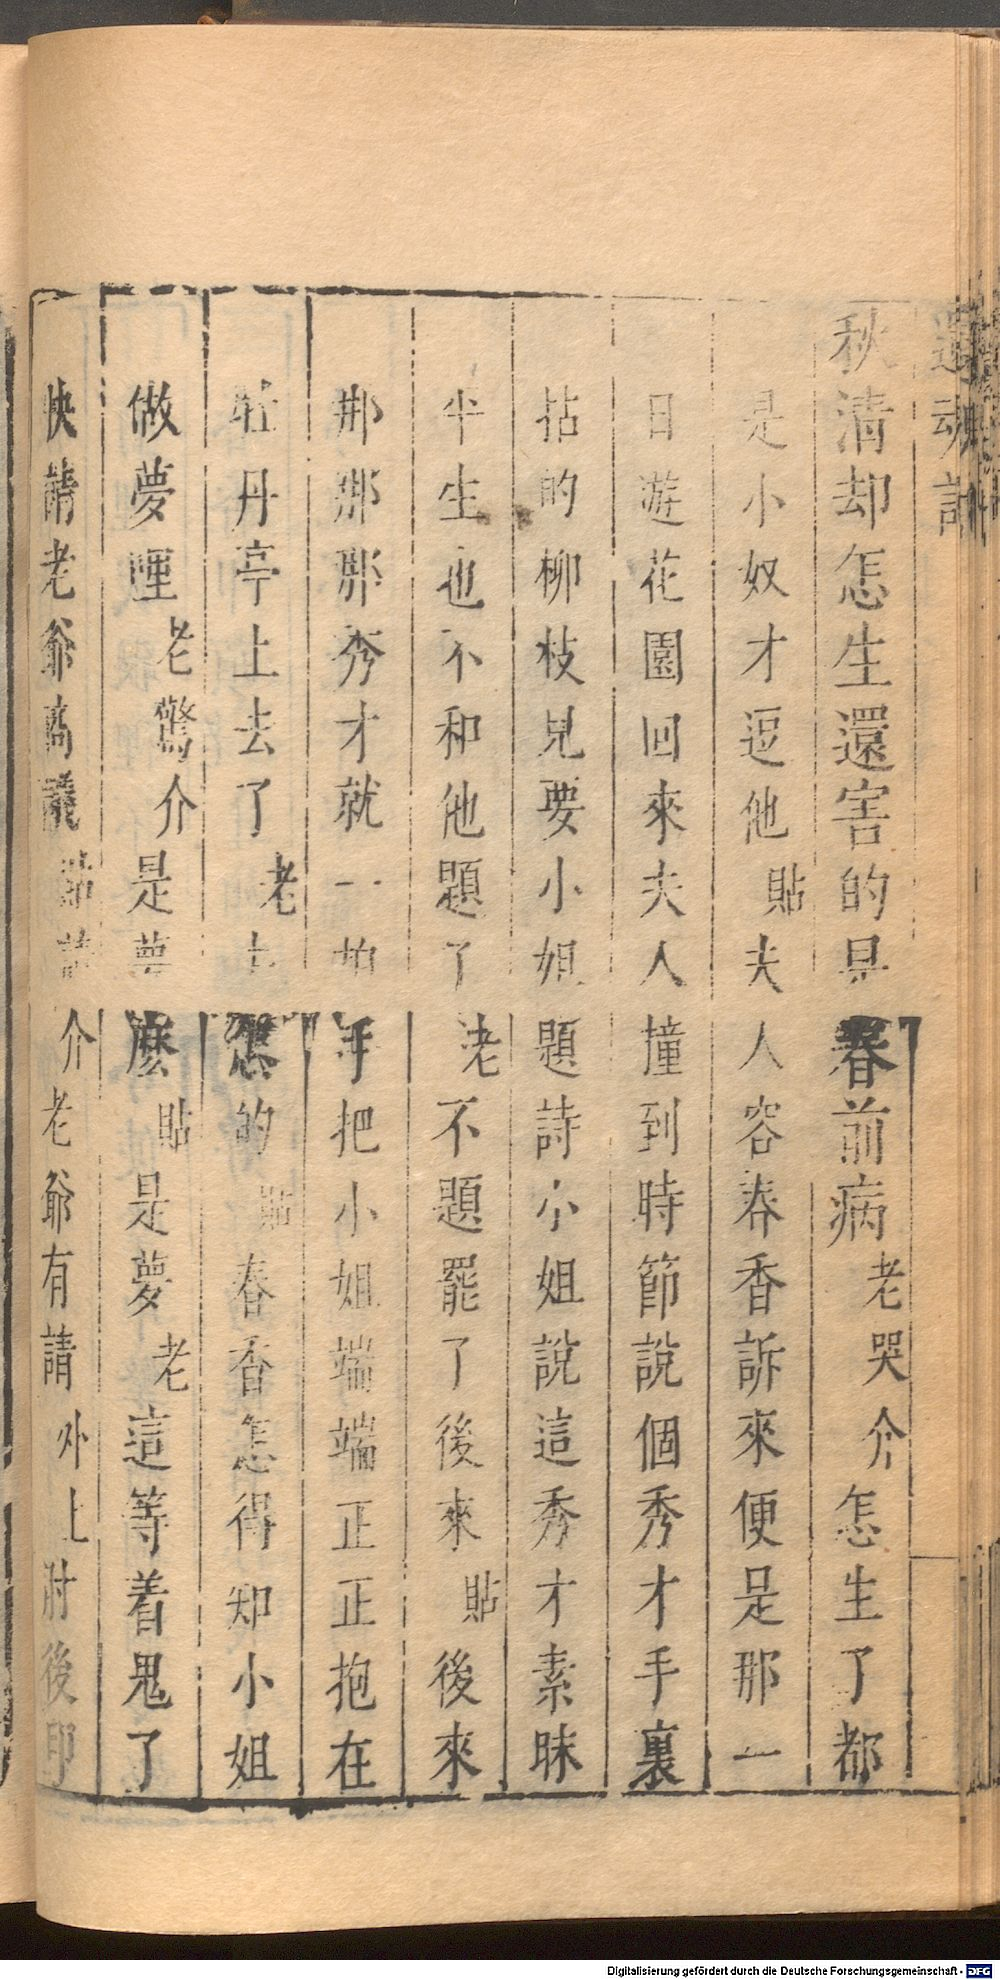 還魂記
秋清却怎生還害的是春前病老哭介怎生了都
是小奴才逗他貼夫人容春香訴來便是那一
日遊花園回來夫人撞到時節說個秀才手裏
拈的柳枝兒要小姐題詩小姐說這秀才素昧
半生也不和他題了老不題罷了後來貼後來
那那那秀才就一拍手把小姐端端正正抱在
牡丹亭上去了老去怎的貼春香怎得知小姐
做夢哩老驚介是夢麽貼是夢老這等着鬼了
快請老爺商議貼請介老爺有請外上肘後印
Digitalisierung gefördert durch die Deutsche Forschungsgemeinschaft - DFG